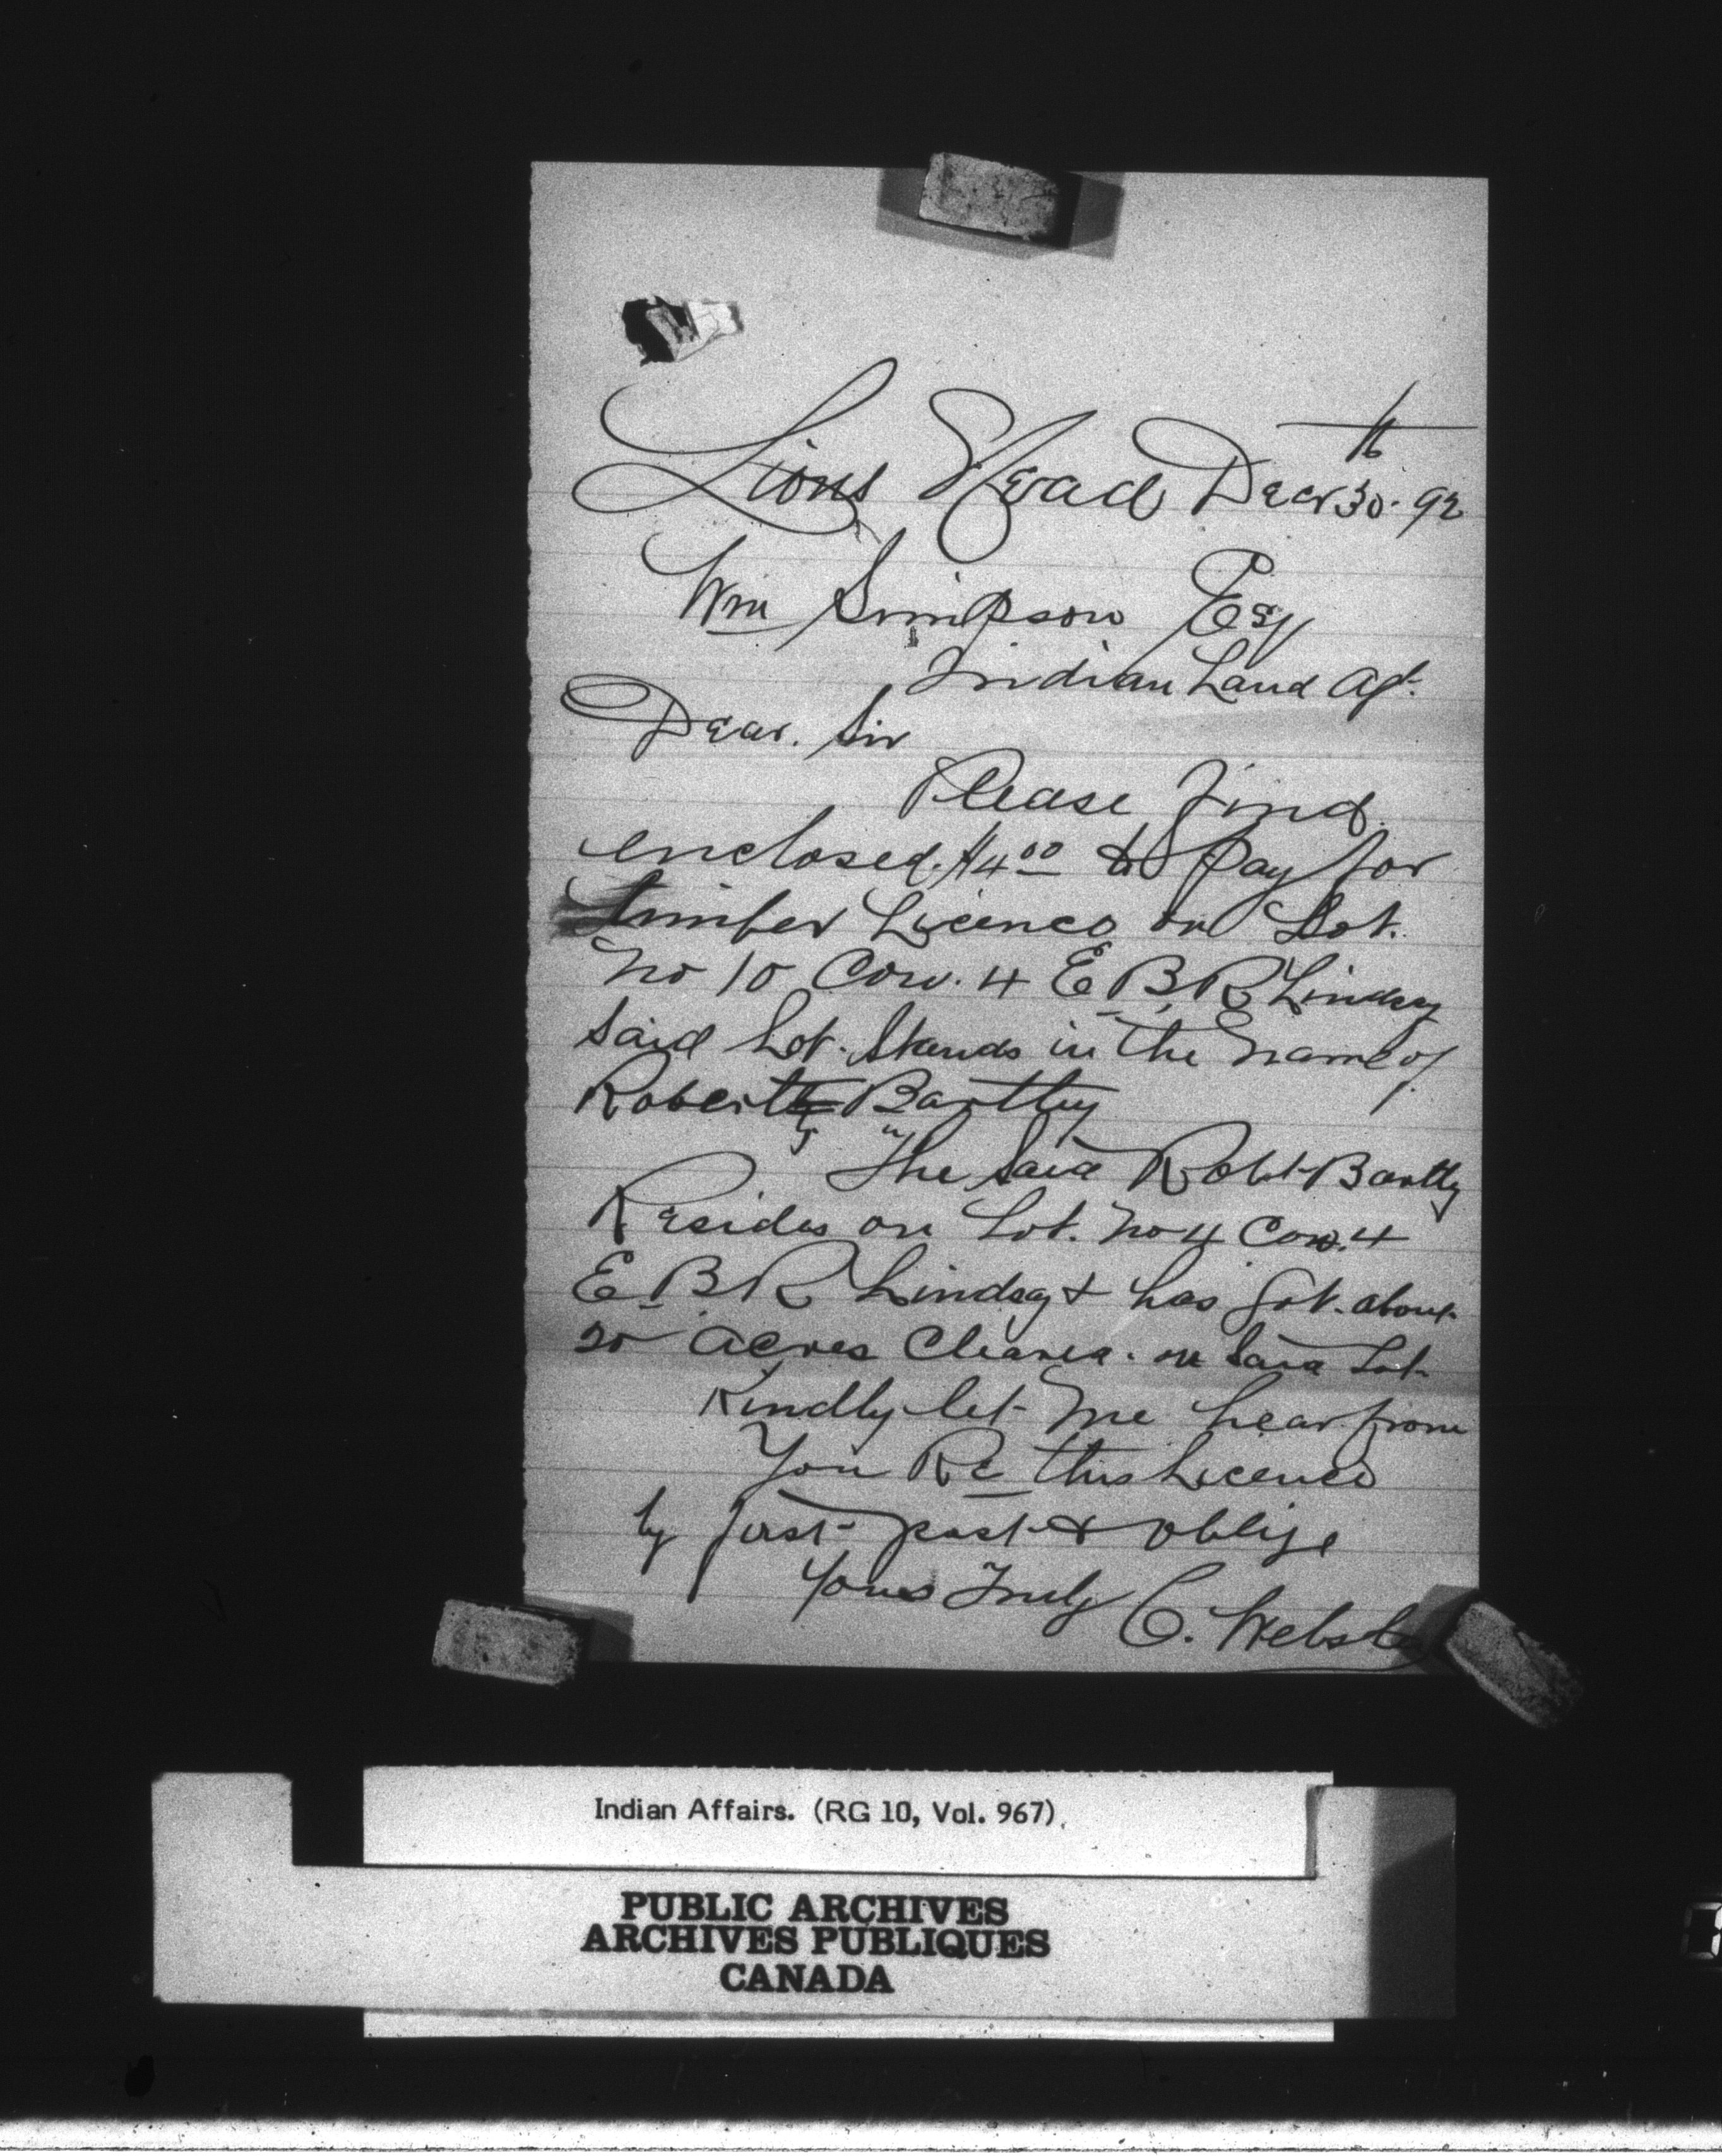 Lions Head Decr 30th 92
Wm Simpson Esq
Indian Land Agt.
Dear. Sir
Please find
enclosed. $4.00 to pay for
timber Licence on Lot.
no 10 Con. 4 E B R Lindsay
said Lot. Stands in the name of
Robert Bartley
The said Robt Bartly
Resides on Lot. no 4 Con. 4
E B R Lindsay & has got. about
20 acres Cleared. on said Lot
Kindly let me hear from
You Re this Licence
by first post & oblige
Yours Truly C. Webster
Indian Affairs. (RG 10, Vol. 967)
PUBLIC ARCHIVES
ARCHIVES PUBLIQUES
CANADA